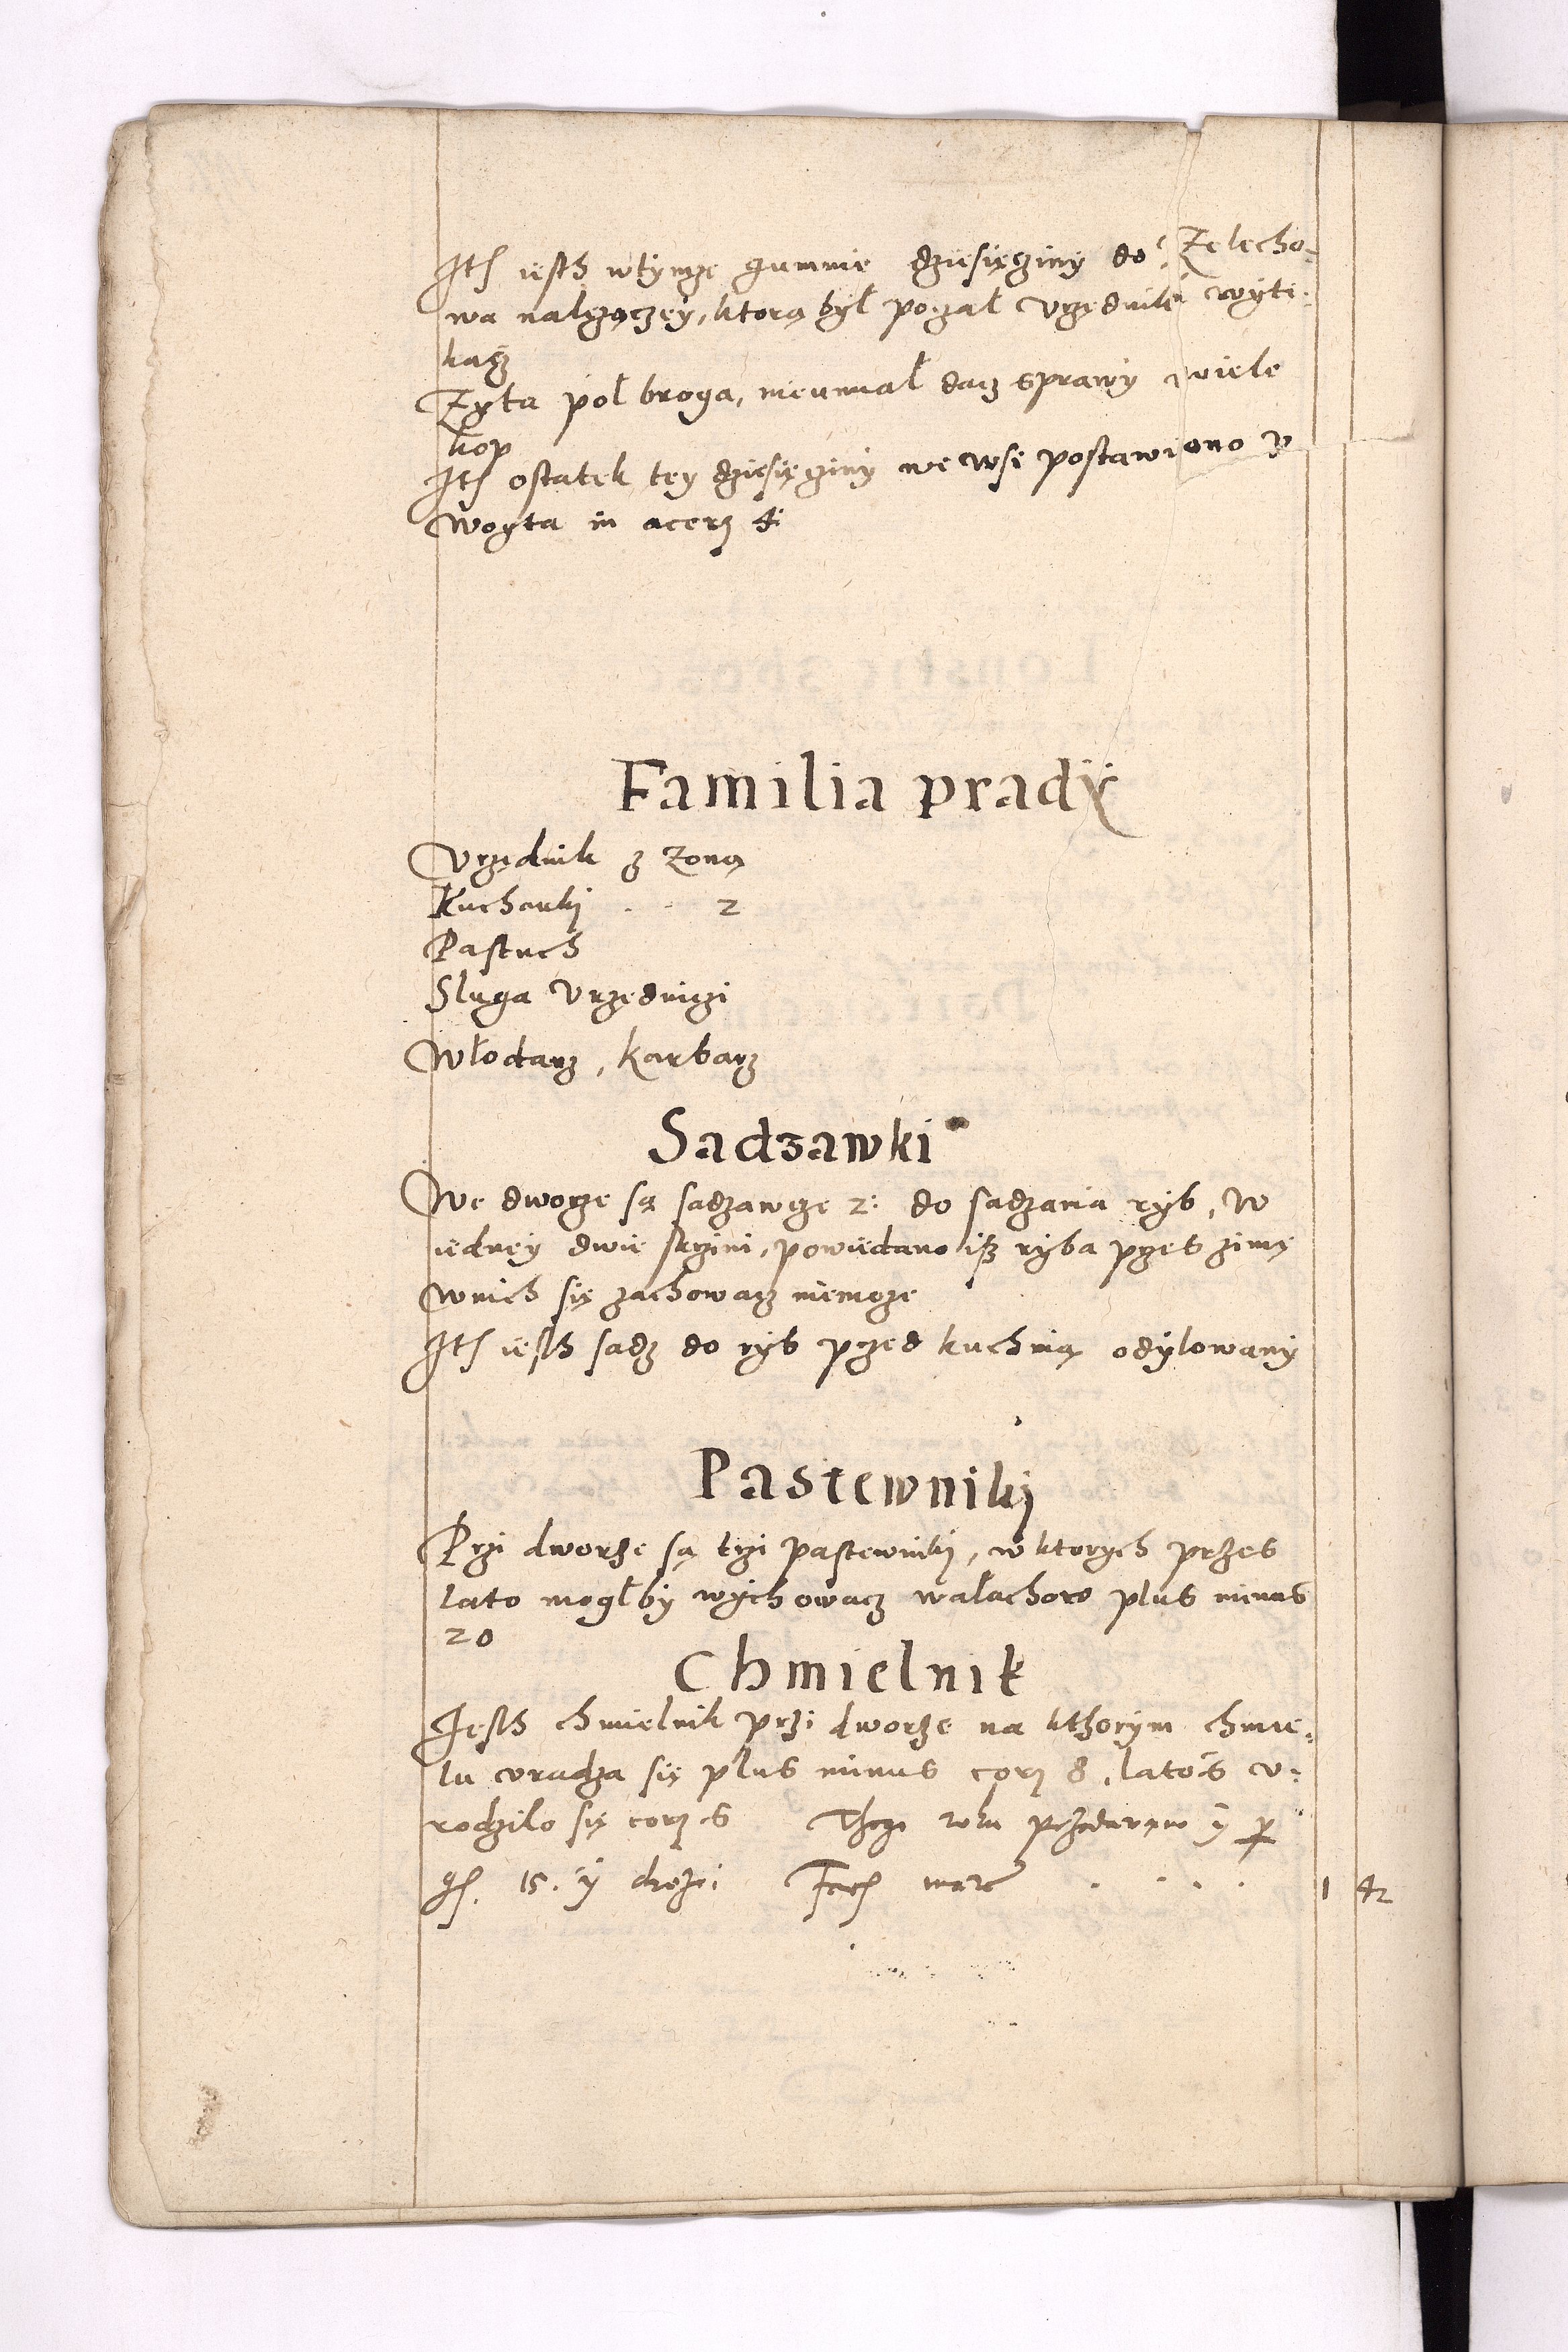 It[em] iesth wtymze gumnie dziesięcziny do Zelecho-
wa nalęzączey, ktorą był pozał Vrzędnik wyti-
kacz
Zyta poł broga, nieumiał dacz sprawy wiele
kop
It[em] ostatek tey dzięsięcziny we wsi postawiono v
Woyta in acer[vis] 4
Familia prądy
Vrzędnik z zoną
Kucharki . . 2
Pastuch
Sluga Vrzędniczi
Włodarz, karbarz
Sadzawki
We dworze są sadzawcze 2: do sadzania ryb, w
iedney dwie skrzini, powiedano isz ryba przes zimę
wnich się zachowacz niemoze
It[em] iesth sadz do ryb przed kuchnią odylowany
Pastewniki
Przi dworze są trzi pastewniki, w ktorych przes
lato mogłby wychowacz wałachow plus minus
20
Chmielnik
Iesth chmielnik przi dworze na kthorym chmie-
lu vradza się plus minus cor[os] 8, latoś v-
rodzilo się cor[os] 6 Thego roku
15. y Fac[it] marc
1 42